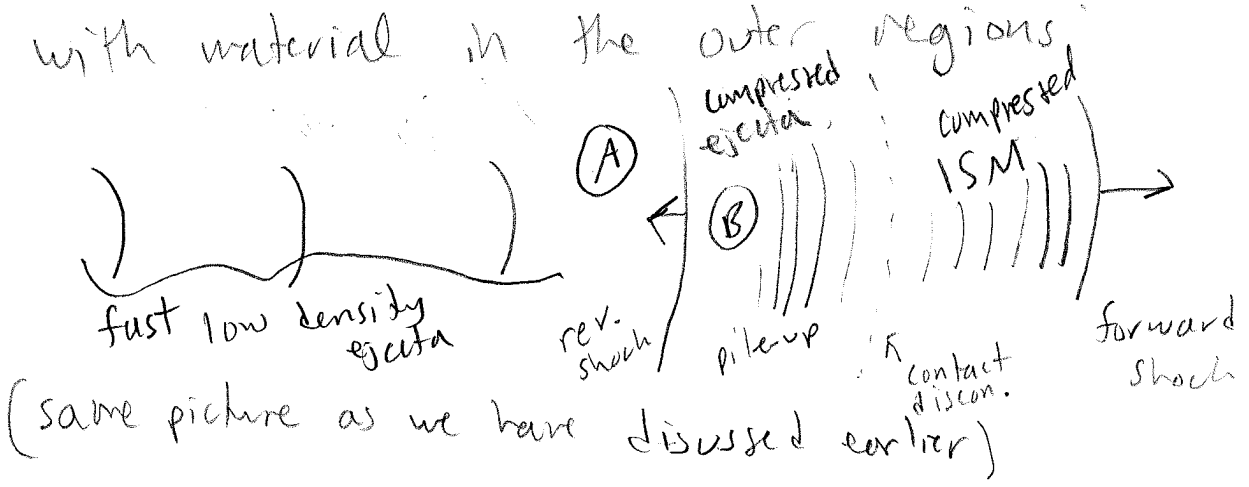 with material in the outer regions
compressed
ejecta
compressed
ISM
A
B
fast low density
ejecta
rev.
shock
pile-up
contact
discon.
forward
shock
(same picture as we have disussed earlier)